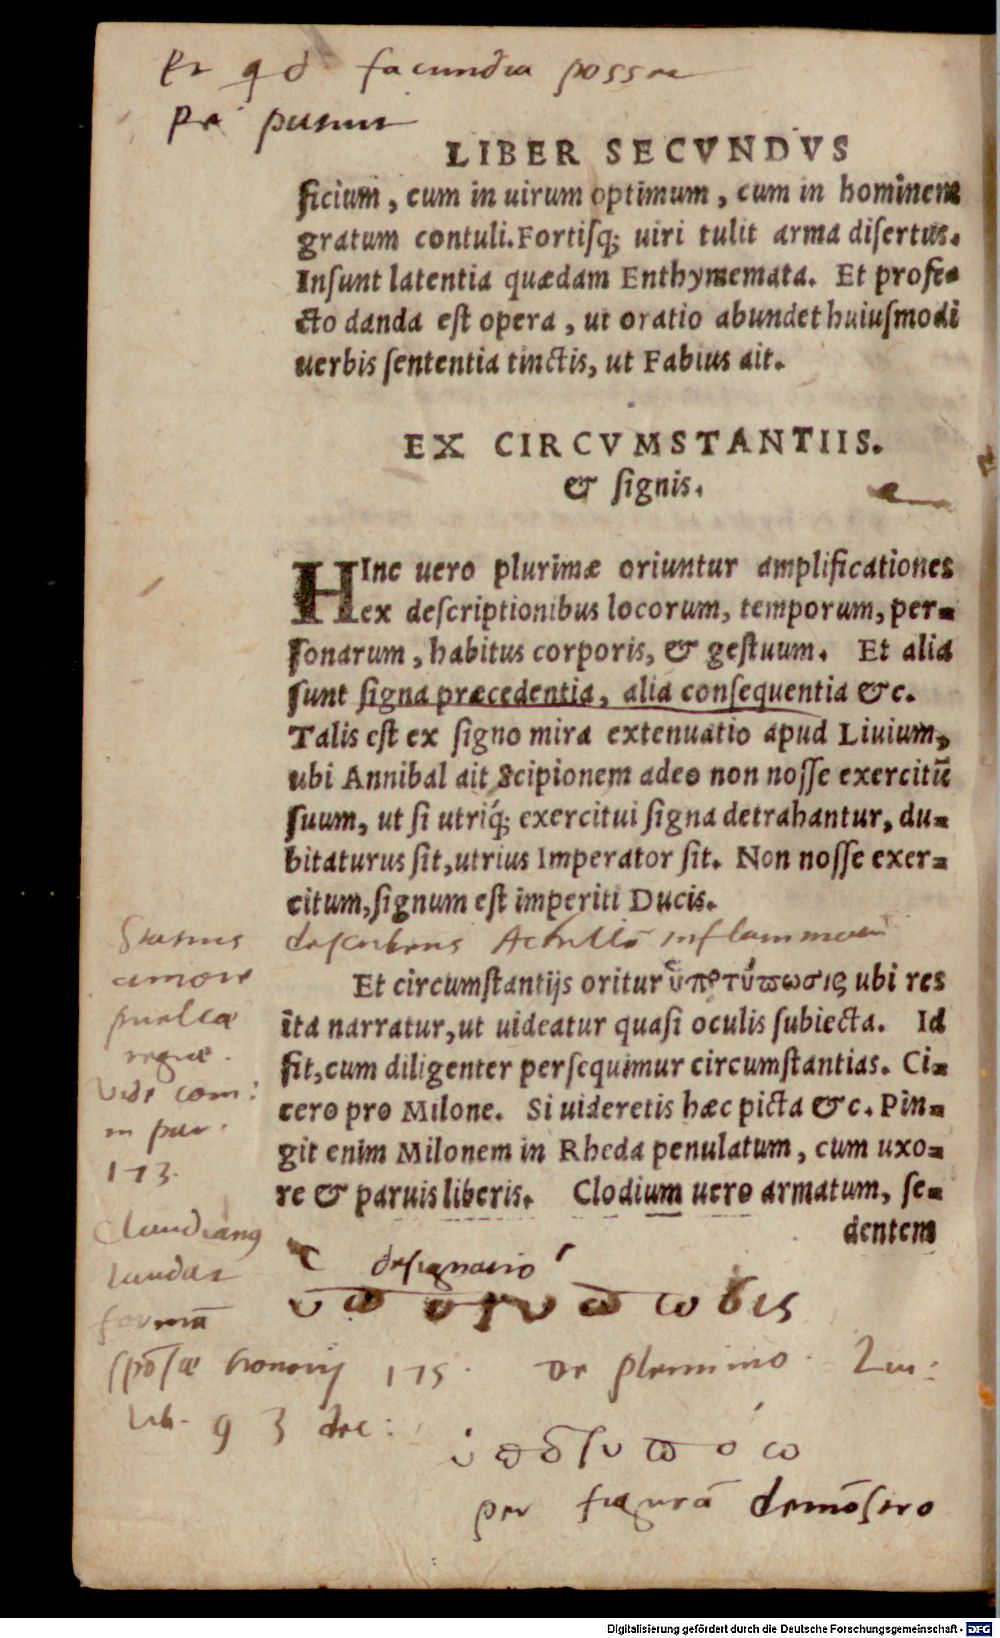 facundia posset
LIBER SECVNDVS
ficium, cum in uirum optimum, cum in hominem
gratum contuli. Fortisq; uiri tulit arma disertus.
Insunt latentia quædam Enthymemata. Et profe-
cto danda est opera, ut oratio abundet huiusmodi
uerbis sententia tinctis, ut Fabius ait.
EX CIRCVMSTANTIIS.
& signis.
HInc uero plurimæ oriuntur amplificationes
ex descriptionibus locorum, temporum, per-
sonarum, habitus corporis, & gestuum. Et alia
sunt signa præcedentia, alia consequentia &c.
Talis est ex signo mira extenuatio apud Liuium,
ubi Annibal ait Scipionem adeo non nosse exercitũ
suum, ut si utriq́; exercitui signa detrahantur, du-
bitaturus sit, utrius Imperator sit. Non nosse exer-
citum, signum est imperiti Ducis.
Statius describens Achillē inflammatū
amore
puellæ
regiæ.
Vide com:
in pur.
173.
Et circumstantijs oritur ὑποτύπωσις ubi res
ita narratur, ut uideatur quasi oculis subiecta. Id
fit, cum diligenter persequimur circumstantias. Ci-
cero pro Milone. Si uideretis hæc picta &c. Pin-
git enim Milonem in Rheda penulatum, cum uxo-
re & paruis liberis. Clodium uero armatum, se-
dentem
Claudianus
laudat
formā
spōsæ honorij 175.
designatio
de pleminio. Liu:
lib. 9 3 dec:
per figurā demōstro
Digitalisierung gefördert durch die Deutsche Forschungsgemeinschaft - DFG